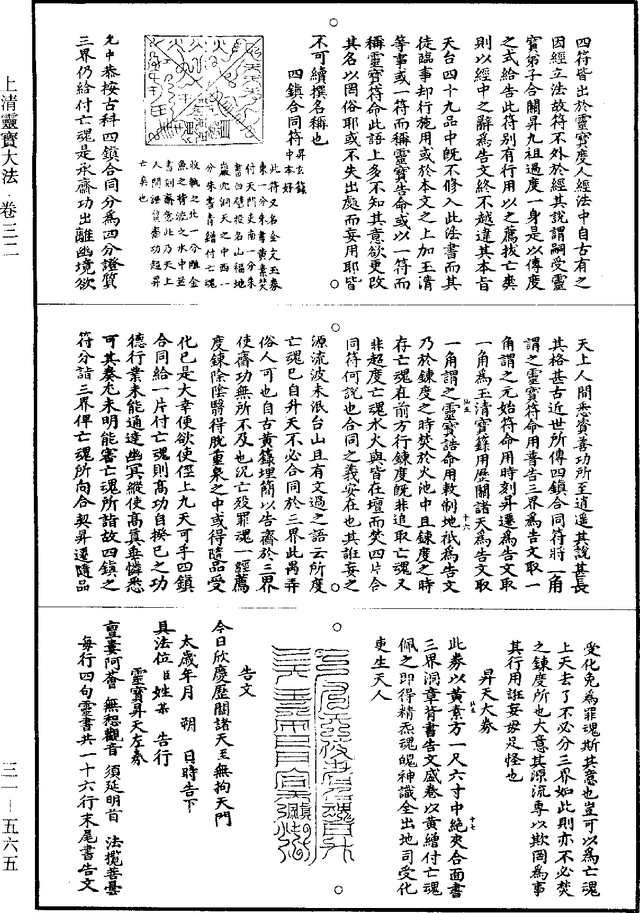 上清靈寶大法 卷三二
三一－五六五
四符皆出於靈寶度人經法中自古有之
因經立法故符不外於經其說謂嗣受靈
寶弟子合關昇九祖過度一身是以傳度
之式給告此符別有行用以之薦拔亡爽
則以經中之辭為告文終不越違其本旨
天台四十九品中既不修入此法書而其
徒臨事却行施用或於本文之上加玉清
等事或一符而稱靈寶告命或以一符而
稱靈寶符命此語上多不知其意欲更改
其名以罔俗耶或不失出處而妄用耶皆
不可續撰名稱也
四鎮合同符昇玄籙中本好
此符又名金文玉券
東一分朱書黃素焚
付天門南一分朱
書白壁投名山福地
嶽洞天之中西一
分朱書青繒付亡魂
收執之北一分雕金
魚之背流之水中並
書刻齋意此乃天上
人間證質齋功超昇
亡爽也
允中恭按古科四鎮合同分為四分證質
三界仍給付亡魂是承齋功出離幽境欲
天上人間悉賓善功所至逍遥其說甚長
其格甚古近世所傳四鎮合同符將一角
謂之靈寶符命用普告三界為告文取一
角謂之元始符命用時刻昇遷為告文取
一角為玉清寶籙用歷關諸天為告文取
一角謂之靈寶誥命用敕制地祇為告文
乃於鍊度之時焚於火池中且鍊度之時
存亡魂在前方行鍊度既非追取亡魂又
非超度亡魂水火與皆在壇而焚四片合
同符何說也合同之義安在也其誑妄之
源流波未泯台山且有文過之語云所度
亡魂已自升天不必合同於三界此愚弄
俗人可也自古黃籙埋簡以告齋於三界
使齋功無所不及也況亡歿罪魂一經薦
度鍊除陰翳得脫重泉之中或得隨品受
化已是大幸便欲使徑上九天可乎四鎮
合同給一片付亡魂則高功自揆已之功
德行業未能通達幽冥縱使高真垂憐悉
可其奏尤未明能審亡魂所詣故四鎮之
符分詣三界俾亡魂所向合契昇遷隨品
受化免為罪魂斯其意也豈可以為亡魂
上天去了不必分三界如此則亦不必焚
之鍊度所也大意其源流專以欺罔為事
其行用誑妄毋足怪也
昇天大券
此券以黃素方一尺六寸中絕夾合面書
三界洞章背書告文盛卷以黃繒付亡魂
佩之即得精炁魂魄神識全出地司受化
更生天人
告文
今日欣慶歷關諸天主無拘天門
太歲年月 朔 日時告下
具法位臣姓某 告行
靈寶昇天左券
亶婁阿薈 無惒觀音 須延明首 法攬菩曇
每行四句靈書共一十六行末尾書告文